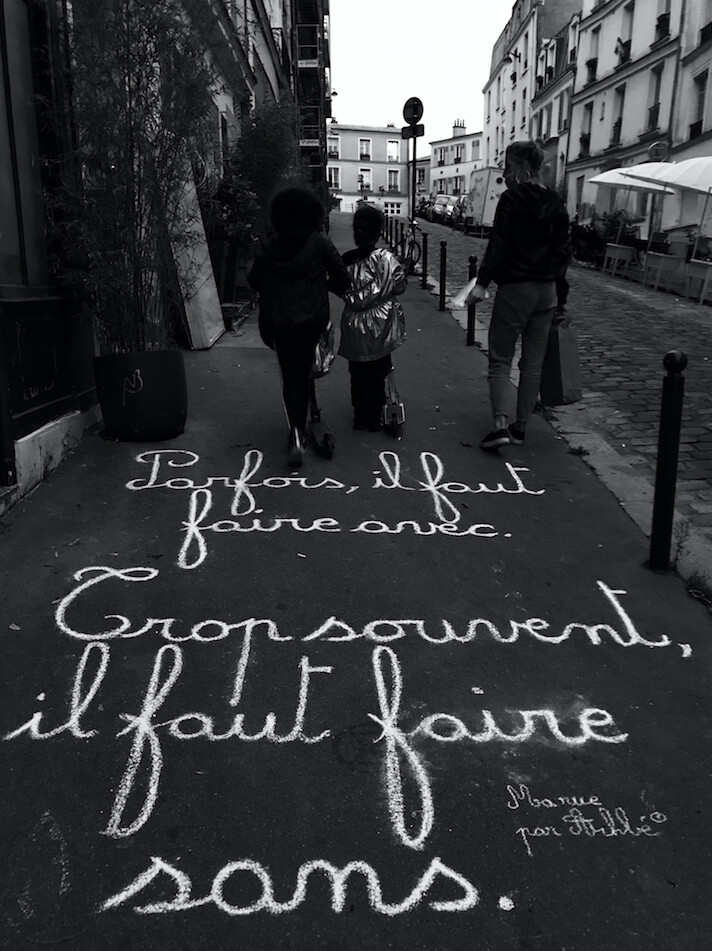 Parfois, il faut
faire avec.
Trop souvent,
il faut faire
sans.
Ma rue
par Achbé